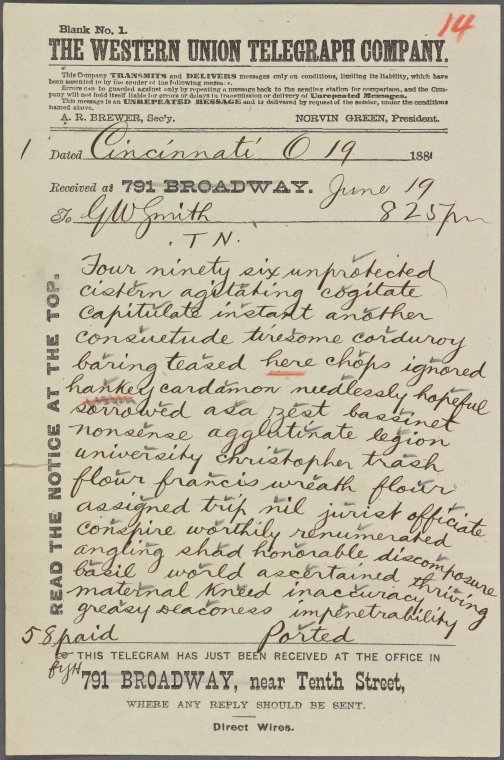 14
Blank No. 1.
THE WESTERN UNION TELEGRAPH COMPANY.
This Company TRANSMITS and DELIVERS messages only on conditions, limiting its liability, which have
been assented to by the sender of the following message.
Errors can be guarded against only by repeating a message back to the sending station for comparison, and the Com-
pany will not hold itself liable for errors or delays in transmission or delivery of Unrepeated Messages.
This message is an UNREPEATED MESSAGE and is delivered by request of the sender, under the conditions
named above.
A. R. BREWER, Sec'y. NORVIN GREEN, President.
1 Dated Cincinnati O 19 1881
Received at 791 BROADWAY. June 19
To G W Smith 8 25 pm
T N.
Four ninety six unprotected
cistern agitating cogitate
capitulate instant another
consuetude tiresome corduroy
baring teased here chops ignored
hankey cardamon needlessly hopeful
sorrowed asa zest bassinet
nonsense agglutinate legion
university christopher trash
flour francis wreath flour
assigned trip nil jurist officiate
conspire worthily renumerated
angling shad honorable discomposure
basil world ascertained thriving
maternal kneed inaccuracy
greasy deaconess impenetrability
58 paid Ported
READ THE NOTICE AT THE TOP.
THIS TELEGRAM HAS JUST BEEN RECEIVED AT THE OFFICE IN
791 BROADWAY, near Tenth Street,
WHERE ANY REPLY SHOULD BE SENT.
Direct Wires.